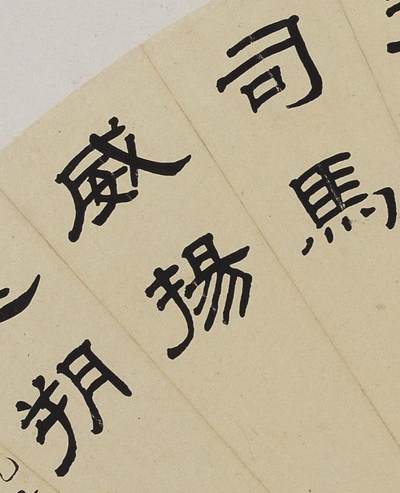 司馬
威揚
朔